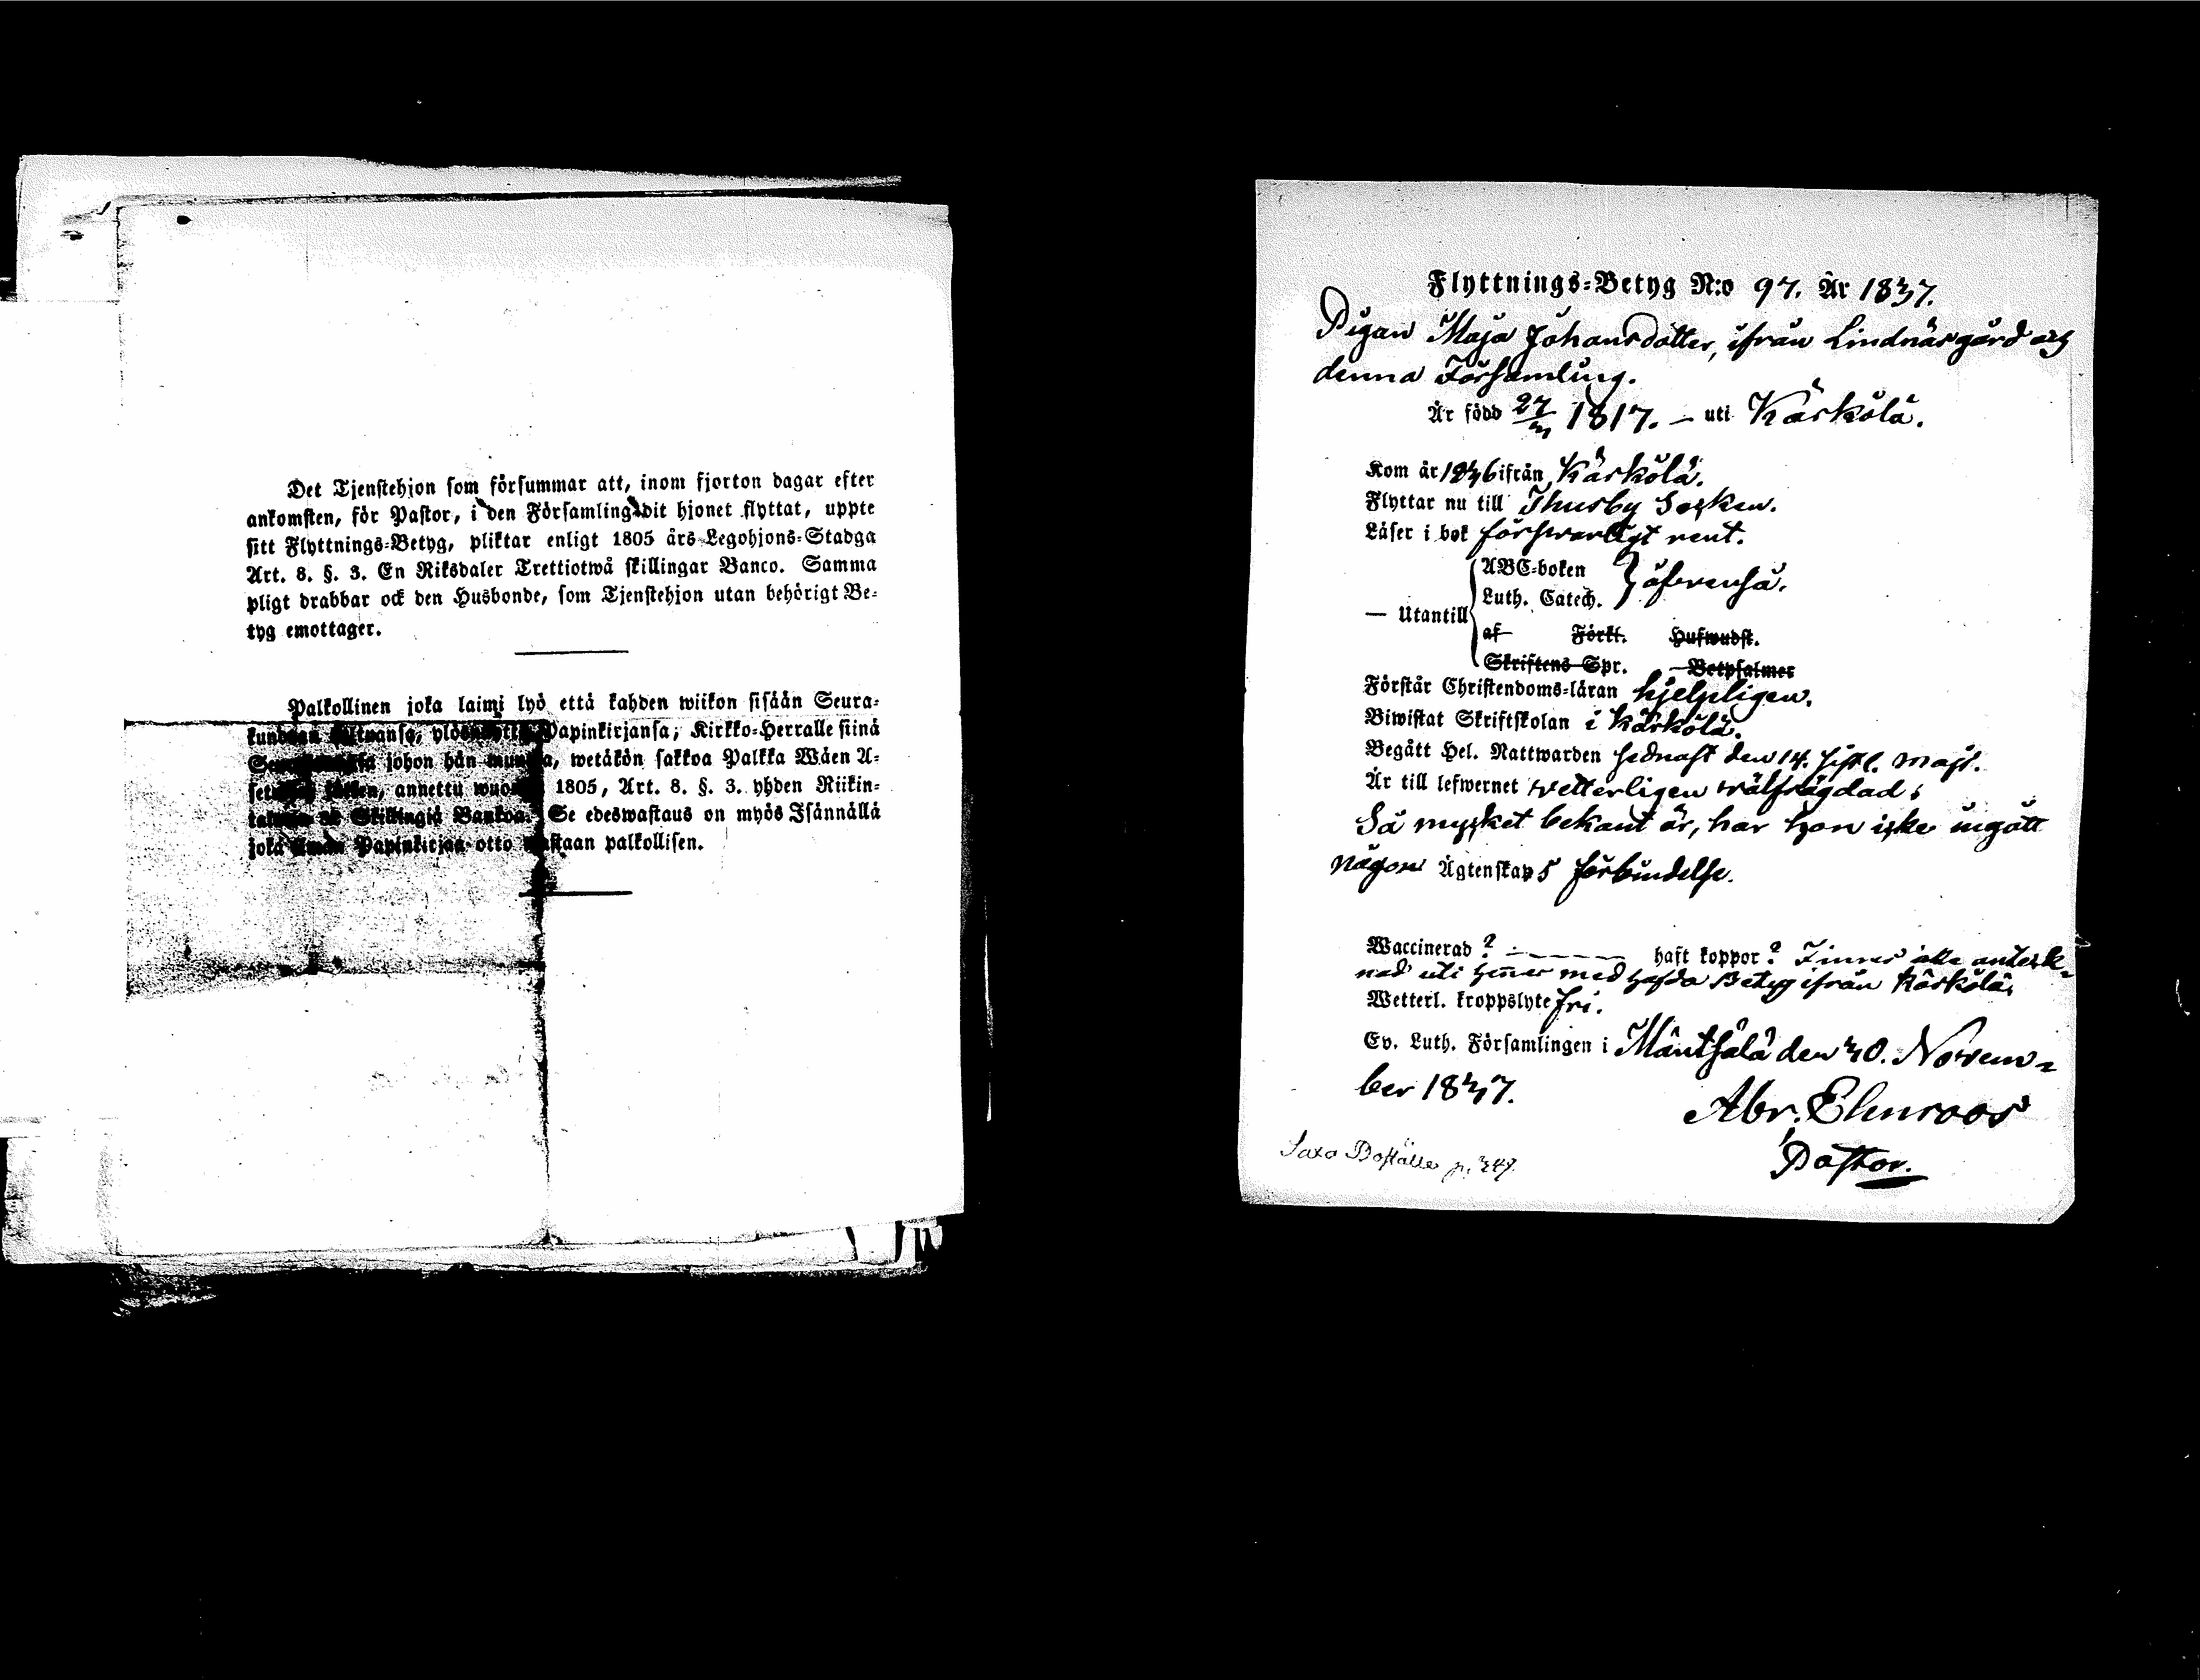 Det Tjenstehjon som försummar att, inom fjorton dagar efter
ankomsten, för Pastor, i den Församling dit hjonet flyttat, uppte
sitt Flyttnings-Betyg, pliktar enligt 1805 års Legohjons-Stadga
Art. 8. §. 3. En Riksdaler Trettiotwå skillingar Banco. Samma
pligt drabbar ock den Husbonde, som Tjenstehjon utan behörigt Be-
tyg emottager.
Palkollinen joka laimi lyö että kahden wiikon sisään Seura-
Papinkirjansa, Kirkko-Herralle siinä
johon hän wetäkön sakkoa Palkka Wäen A-
annettu 1805, Art. 8. §. 3. yhden Riikin-
Skillingiä Se edeswastaus on myös Isännällä
joka Papinkirjaa otto palkollisen.
Flyttnings-Betyg N:o 97. År 1837.
Pigan Maja Johansdotter, ifrån Lindnäs gård och
denna Församling.
Är född 27/ 1817. – uti Kärkölä.
Kom år 1836 ifrån Kärkölä.
Flyttar nu till Thusby Socken.
Läser i bok förswarligt rent.
ABC-boken
Luth. Catech. } äfvenså.
— Utantill
af Förkl. Hufwudst.
Skriftens Spr. Botpsalmer
Förstår Christendoms-läran hjelpligen.
Biwistat Skriftskolan i Kärkölä.
Begått Hel. Nattwarden sednast den 14. sistl. Maji.
Är till lefwernet wetterligen wälfrägdad;
Så mycket bekant är, har hon icke ingått
någon Ägtenskaps förbindelse.
Waccinerad? – – – – – – haft koppor? Finnes icke anteck-
nad uti hennes medhafda Betyg ifrån Kärkölä.
Wetterl. kroppslyte fri.
Ev. Luth. Församlingen i Mäntsälä den 30. Novem-
ber 1837.
Abr. Elmroos
Pastor.
Saxa Boställe p. 347.